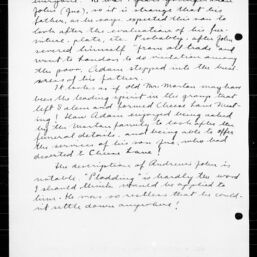 John (Jno), so it is strange that his
father, as he says expected this son to
look after the evaluation of his fur-
niture, plate, etc. Probably after John
severed himself "from all trade and
went to London, to do visitation among
the poor, Adam stepped into the busi-
ness of his father.
It looks as if old Mr. Martan may have
been the leading spirit in the group that
left Salem and formed Cheese Lane Meet-
ing! How Adam enjoyed being asked
by the Martan family to look after the
funeral details, and being able to offer
the services of his son Jno, who had
deserted to Cheese Lane!
The description of Andrew's John is
notable. "Plodding" is hardly the word
I should think would be applied to
him. He was so restless that he could-
n't settle down anywhere!